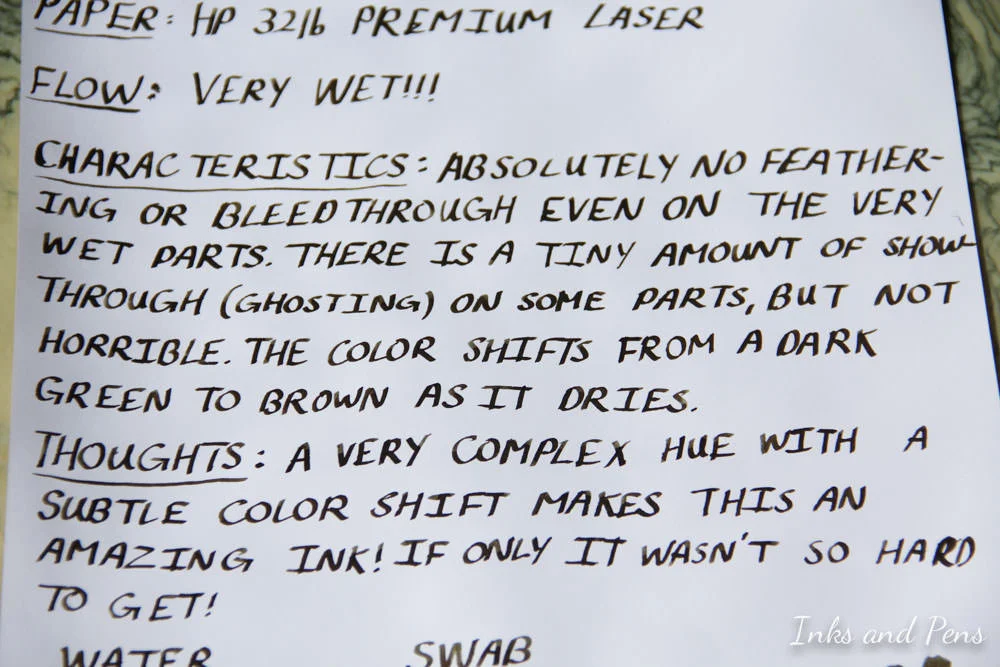 PAPER: HP 32lb PREMIUM LASER
FLOW: VERY WET!!!
CHARACTERISTICS: ABSOLUTELY NO FEATHER-
ING OR BLEEDTHROUGH EVEN ON THE VERY
WET PARTS. THERE IS A TINY AMOUNT OF SHOW-
THROUGH (GHOSTING) ON SOME PARTS, BUT NOT
HORRIBLE. THE COLOR SHIFTS FROM A DARK
GREEN TO BROWN AS IT DRIES.
THOUGHTS: A VERY COMPLEX HUE WITH A
SUBTLE COLOR SHIFT MAKES THIS AN
AMAZING INK! IF ONLY IT WASN'T SO HARD
TO GET!
WATER SWAB
Inks and Pens